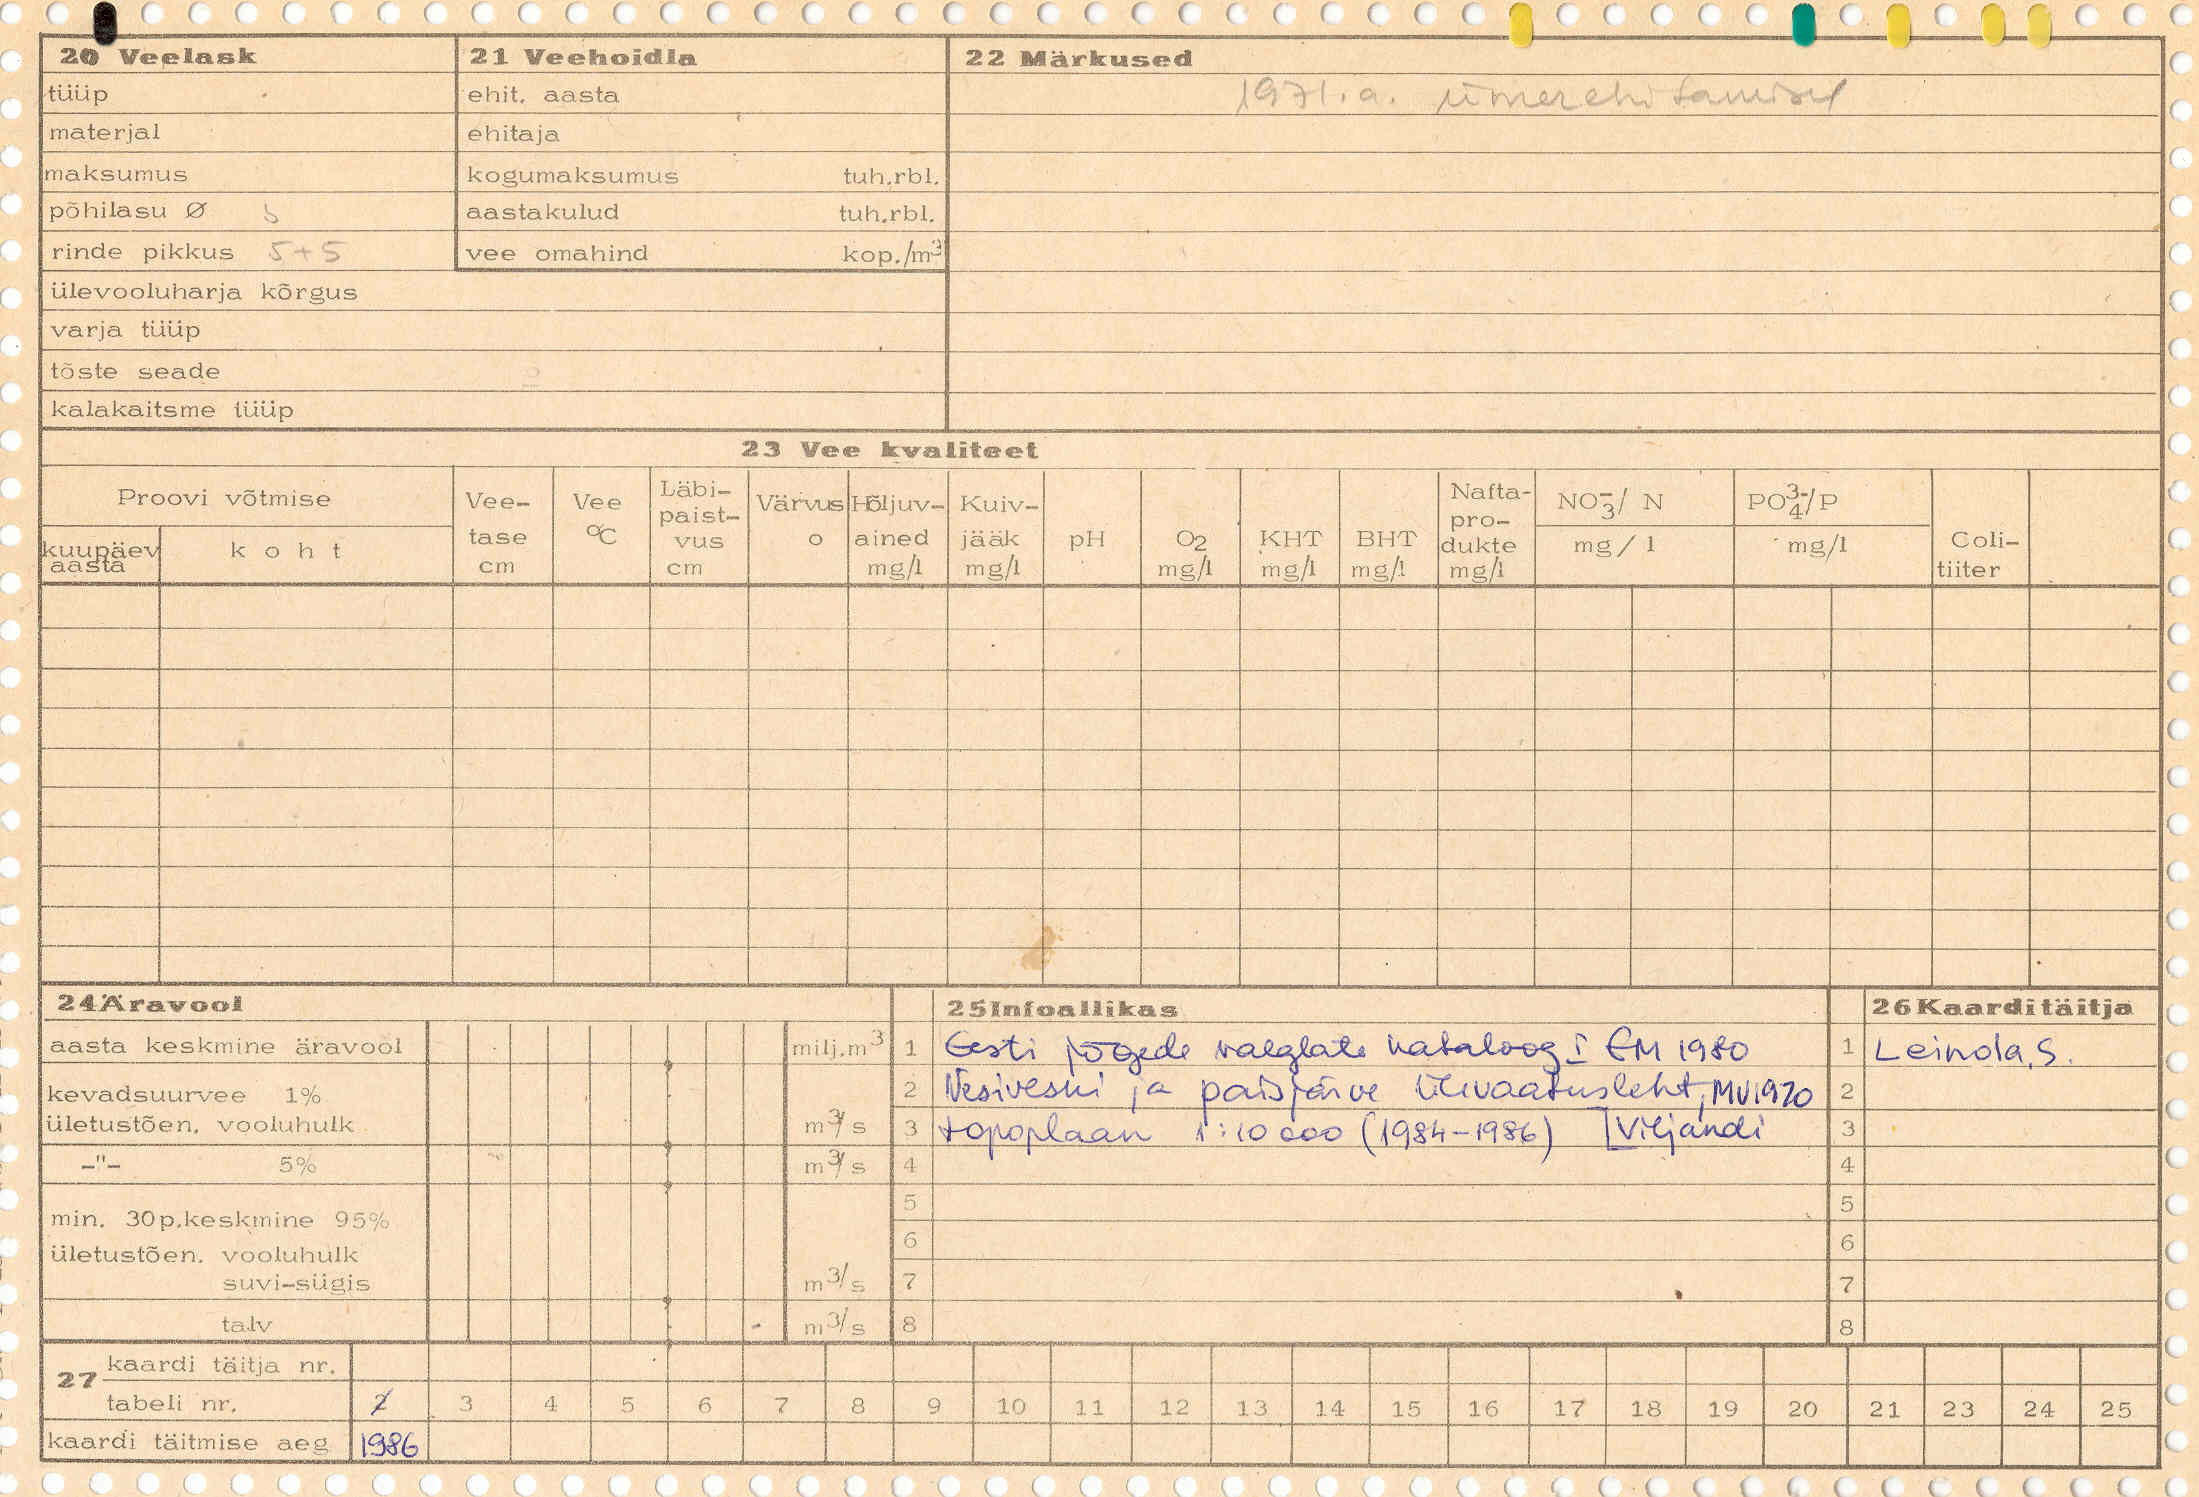 20 Veelask
tüüp
materjal
maksumus
põhilasu Ø
rinde pikkus 5+5
ülevooluharja kõrgus
varja tüüp
tõste seade
kalakaitsme tüüp
21 Veehoidla
ehit. aasta
ehitaja
kogumaksumus tuh.rbl.
aastakulud tuh.rbl.
vee omahind kop./m³
22 Märkused
1971.a. ümerehitamisel
23 Vee kvaliteet
Proovi võtmise
kuupäev aasta
koht
Vee-
tase
cm
Vee
°C
Läbi-
paist-
vus
cm
Värvus
o
Hõljuv-
ained
mg/l
Kuiv-
jääk
mg/l
pH
O2
mg/l
KHT
mg/l
BHT
mg/l
Nafta-
pro-
dukte
mg/l
NO₃⁻/ N
mg/l
PO₄³⁻/P
mg/l
Coli-
tiiter
24 Äravool
aasta keskmine äravool milj.m³
kevadsuurvee 1%
ületustõen. vooluhulk m³/s
-"- 5% m³/s
min. 30p.keskmine 95%
ületustõen. vooluhulk
suvi-sügis m³/s
talv m³/s
25 Infoallikas
1 Eesti jõgede valglate kataloog I EM 1980
2 Vesiveski ja paisjärve ülevaatusleht, MV1970
3 topoplaan 1:10 000 (1984-1986) [Viljandi
4
5
6
7
8
26 Kaarditäitja
1 Leinola, S.
2
3
4
5
6
7
8
27 kaardi täitja nr.
tabeli nr. 2 3 4 5 6 7 8 9 10 11 12 13 14 15 16 17 18 19 20 21 23 24 25
kaardi täitmise aeg 1986